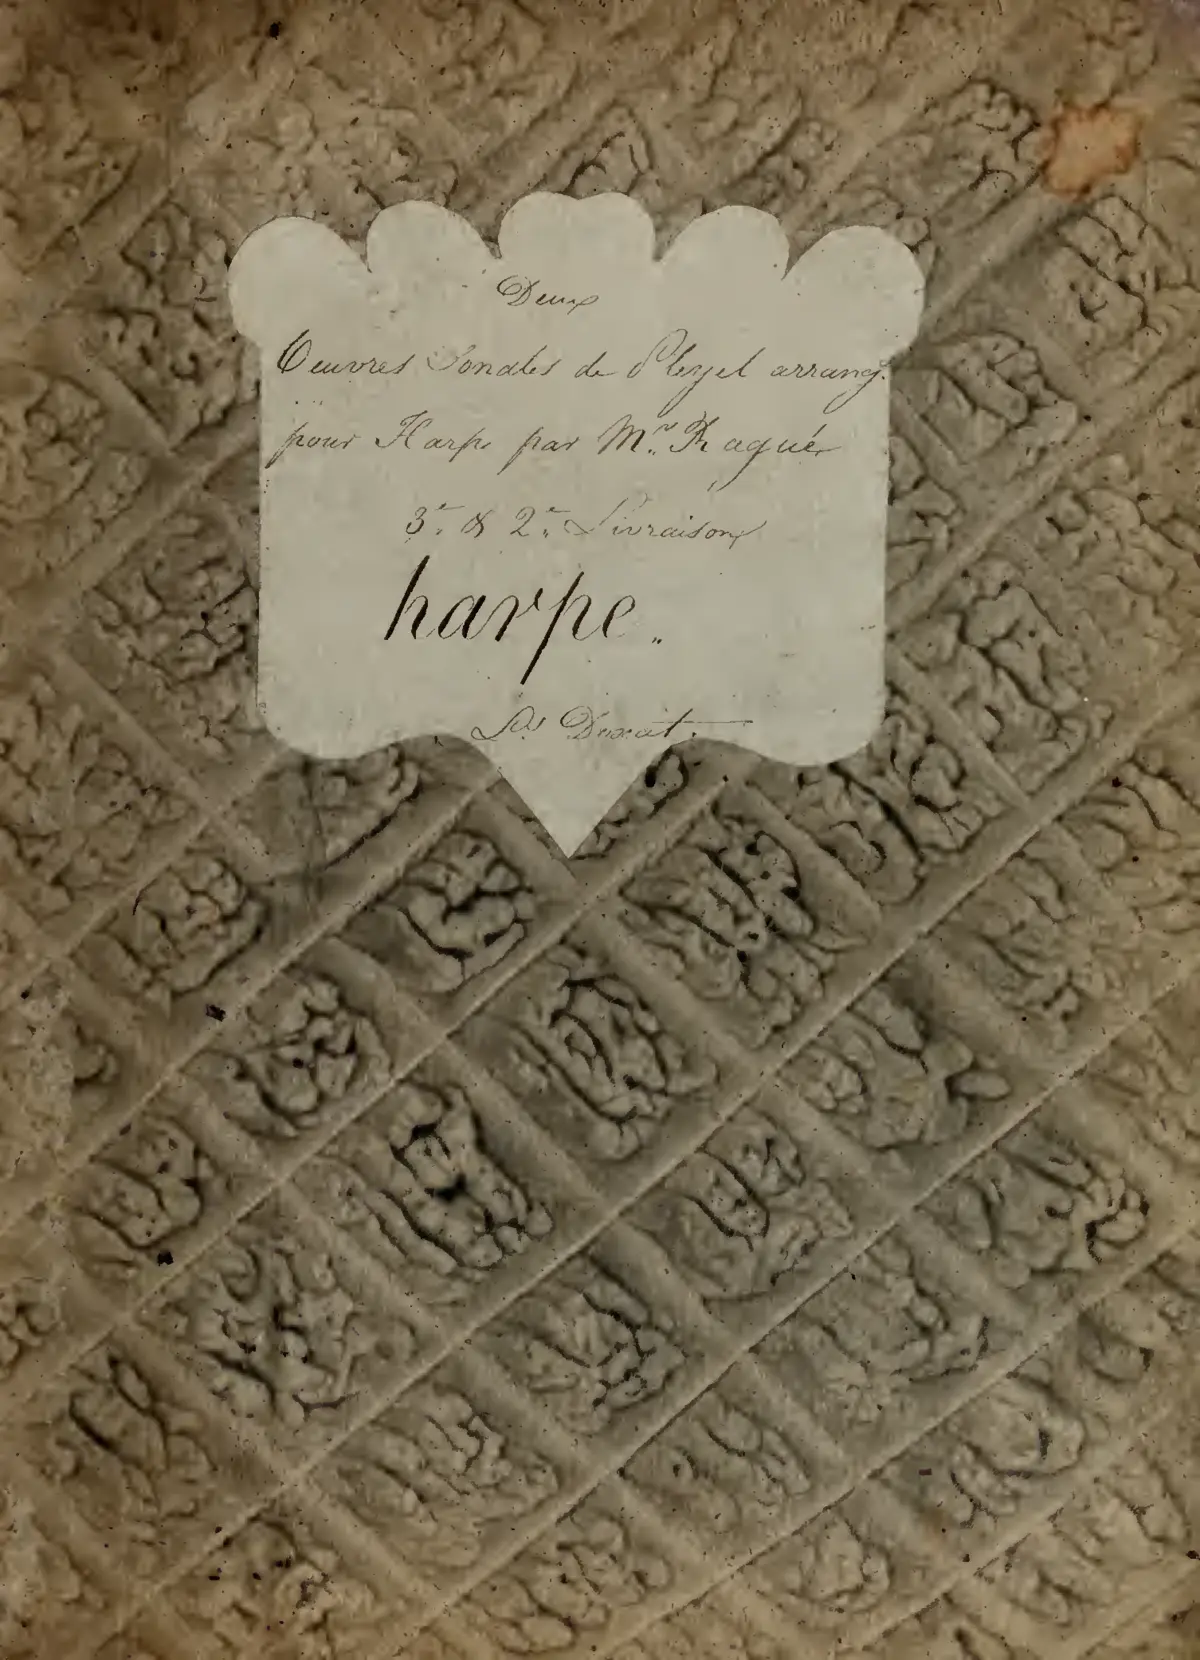 Deux
Oeuvres Sonates de Pleyel arrang.
pour Harpe par Mr. Ragué
3e. & 2e. Livraison
harpe.